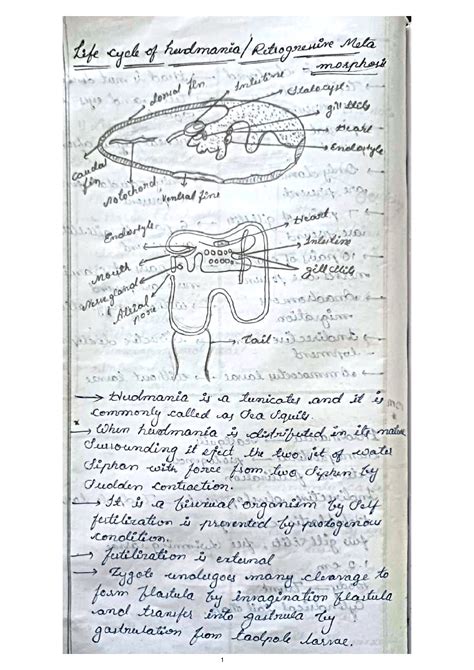 Life cycle of herdmania/Retrogressive Meta
morphosis
dorsal fin
Intestine
Statocyst
gill slits
Heart
Endostyle
Caudal
fin
Notochord
Ventral fine
Endostyle
Heart
Intestine
Mouth
gill slits
Nerve gland
Atrial
pore
Tail
→ Hudmania is a tunicates and it is
commonly called as Sea Squits.
→ When herdmania is distributed in its nature
Surrounding it efect the two jet of water
Siphan with force from two Siphen by
Sudden contraction.
→ It is a bisexual organism by Self
fertilization is prevented by protogenous
condition.
→ fertilization is external
→ Zygote undergoes many cleavage to
form blastula by invagination blastula
and transfer into gastrula by
gastrulation from tadpole larvae.
1